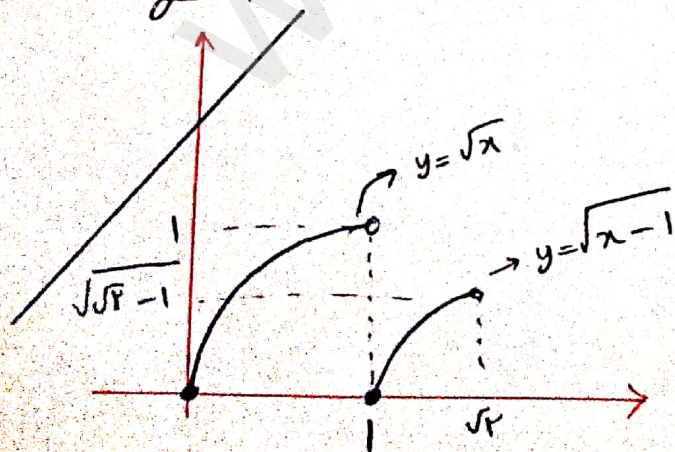 y = √x
1
y = √(x - 1)
√(√۲ - 1)
1
√۲